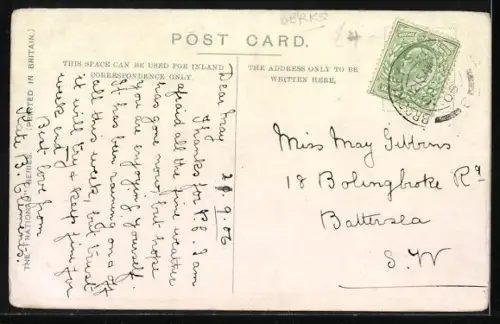 BERKS
POST CARD.
THIS SPACE CAN BE USED FOR INLAND
CORRESPONDENCE ONLY.
THE ADDRESS ONLY TO BE
WRITTEN HERE.
THE "NATIONAL" SERIES.
PRINTED IN BRITAIN.
21.9.06
Dear May
Thanks for P.C. I am
afraid all the fine weather
has gone now, but hope
you are enjoying yourself.
It has been raining on & off
all this week, but trust
it will try & keep fine for
week end
Best love from
Miss May Gibbins
18 Bolingbroke Rd
Battersea
S. W